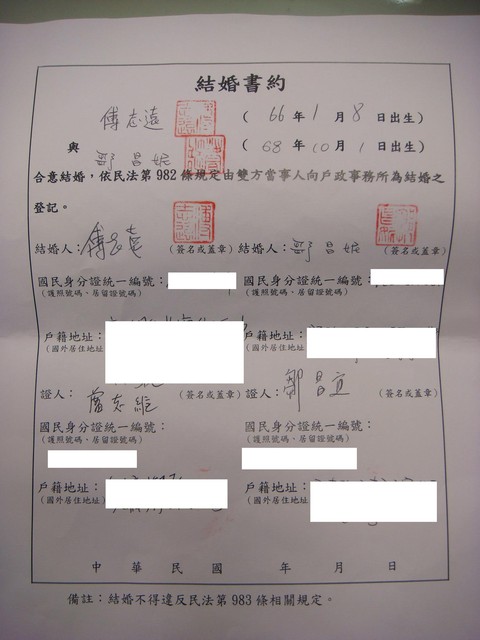 結婚書約
傅志遠 ( 66 年 1 月 8 日出生)
與 鄒昌妮 ( 68 年 10 月 1 日出生)
合意結婚,依民法第982條規定由雙方當事人向戶政事務所為結婚之
登記。
結婚人:傅志遠 (簽名或蓋章) 結婚人:鄒昌妮 (簽名或蓋章)
國民身分證統一編號: 國民身分證統一編號:
(護照號碼、居留證號碼) (護照號碼、居留證號碼)
戶籍地址: 戶籍地址:
(國外居住地址) (國外居住地址)
證人: 志維 (簽名或蓋章) 證人:鄒昌宜 (簽名或蓋章)
國民身分證統一編號: 國民身分證統一編號:
(護照號碼、居留證號碼) (護照號碼、居留證號碼)
戶籍地址: 戶籍地址:
(國外居住地址) (國外居住地址)
中 華 民 國 年 月 日
備註:結婚不得違反民法第983條相關規定。